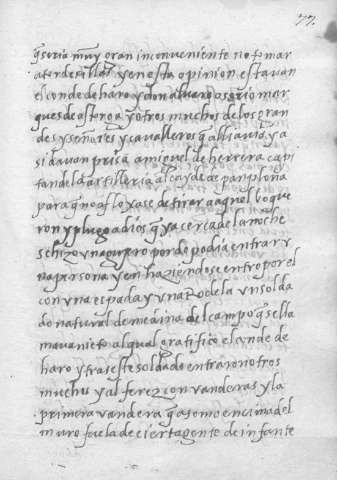 77.
q̃ seria muy gran inconveniente no tomar
a tordesillas y en esta opinion estavan
el conde de haro y don alvaro osorio mar
ques de astorga y otros muchos de los gran
des y señores y cavalleros q̃ alli avia y a
si davan prisa a miguel de herrera capi
tan del artilleria alcayde de panplona
para q̃ no afloxase de tirar a aquel boque
ron y plugo a dios q̃ ya cerca de la noche
se hizo un agujero por do podia entrar v
na persona y en haziendose entro por el
con una espada y una rodela un solda
do natural de medina del campo q̃ se lla
mava nieto al qual gratifico el conde de
haro y tras este soldado entraron otros
muchos y alferez con vanderas y la
primera vandera q̃ asomo encima del
muro fue la de cierta gente de infante